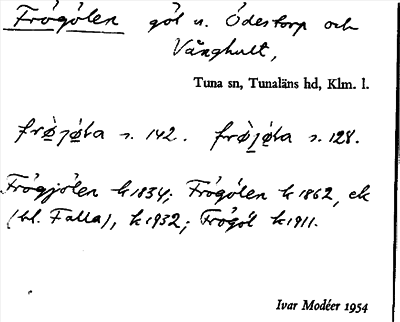 Frögölen göl u. Ödestorp och
Vånghult,
Tuna sn, Tunaläns hd, Klm. l.
frø̀jø̀la s. 142. frø̀jø̀la s. 128.
Frögjölen k 1834; Frögölen k 1862, ek
(bl. Falla), k 1932; Frögöl k 1911.
Ivar Modéer 1954